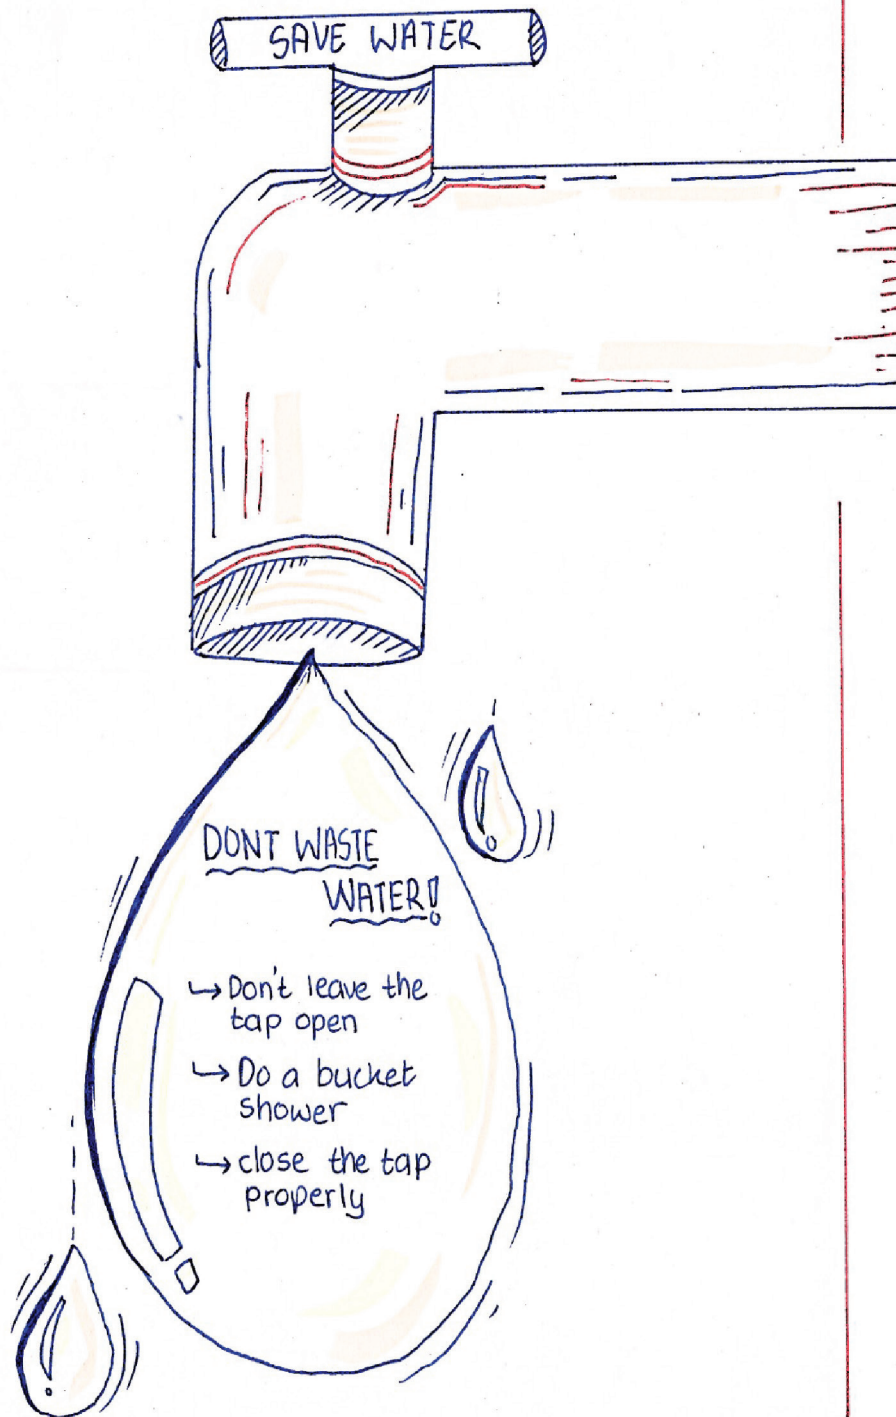 SAVE WATER
DONT WASTE
WATER!
↳Don't leave the
tap open
↳Do a bucket
shower
↳close the tap
properly